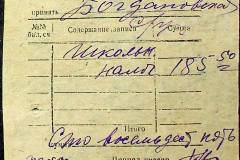 принять Богдановской
№№ бил. сч Содержание записи Сумма
Школьн.
налог 185-50
Итого
Сто восемьдесят пять